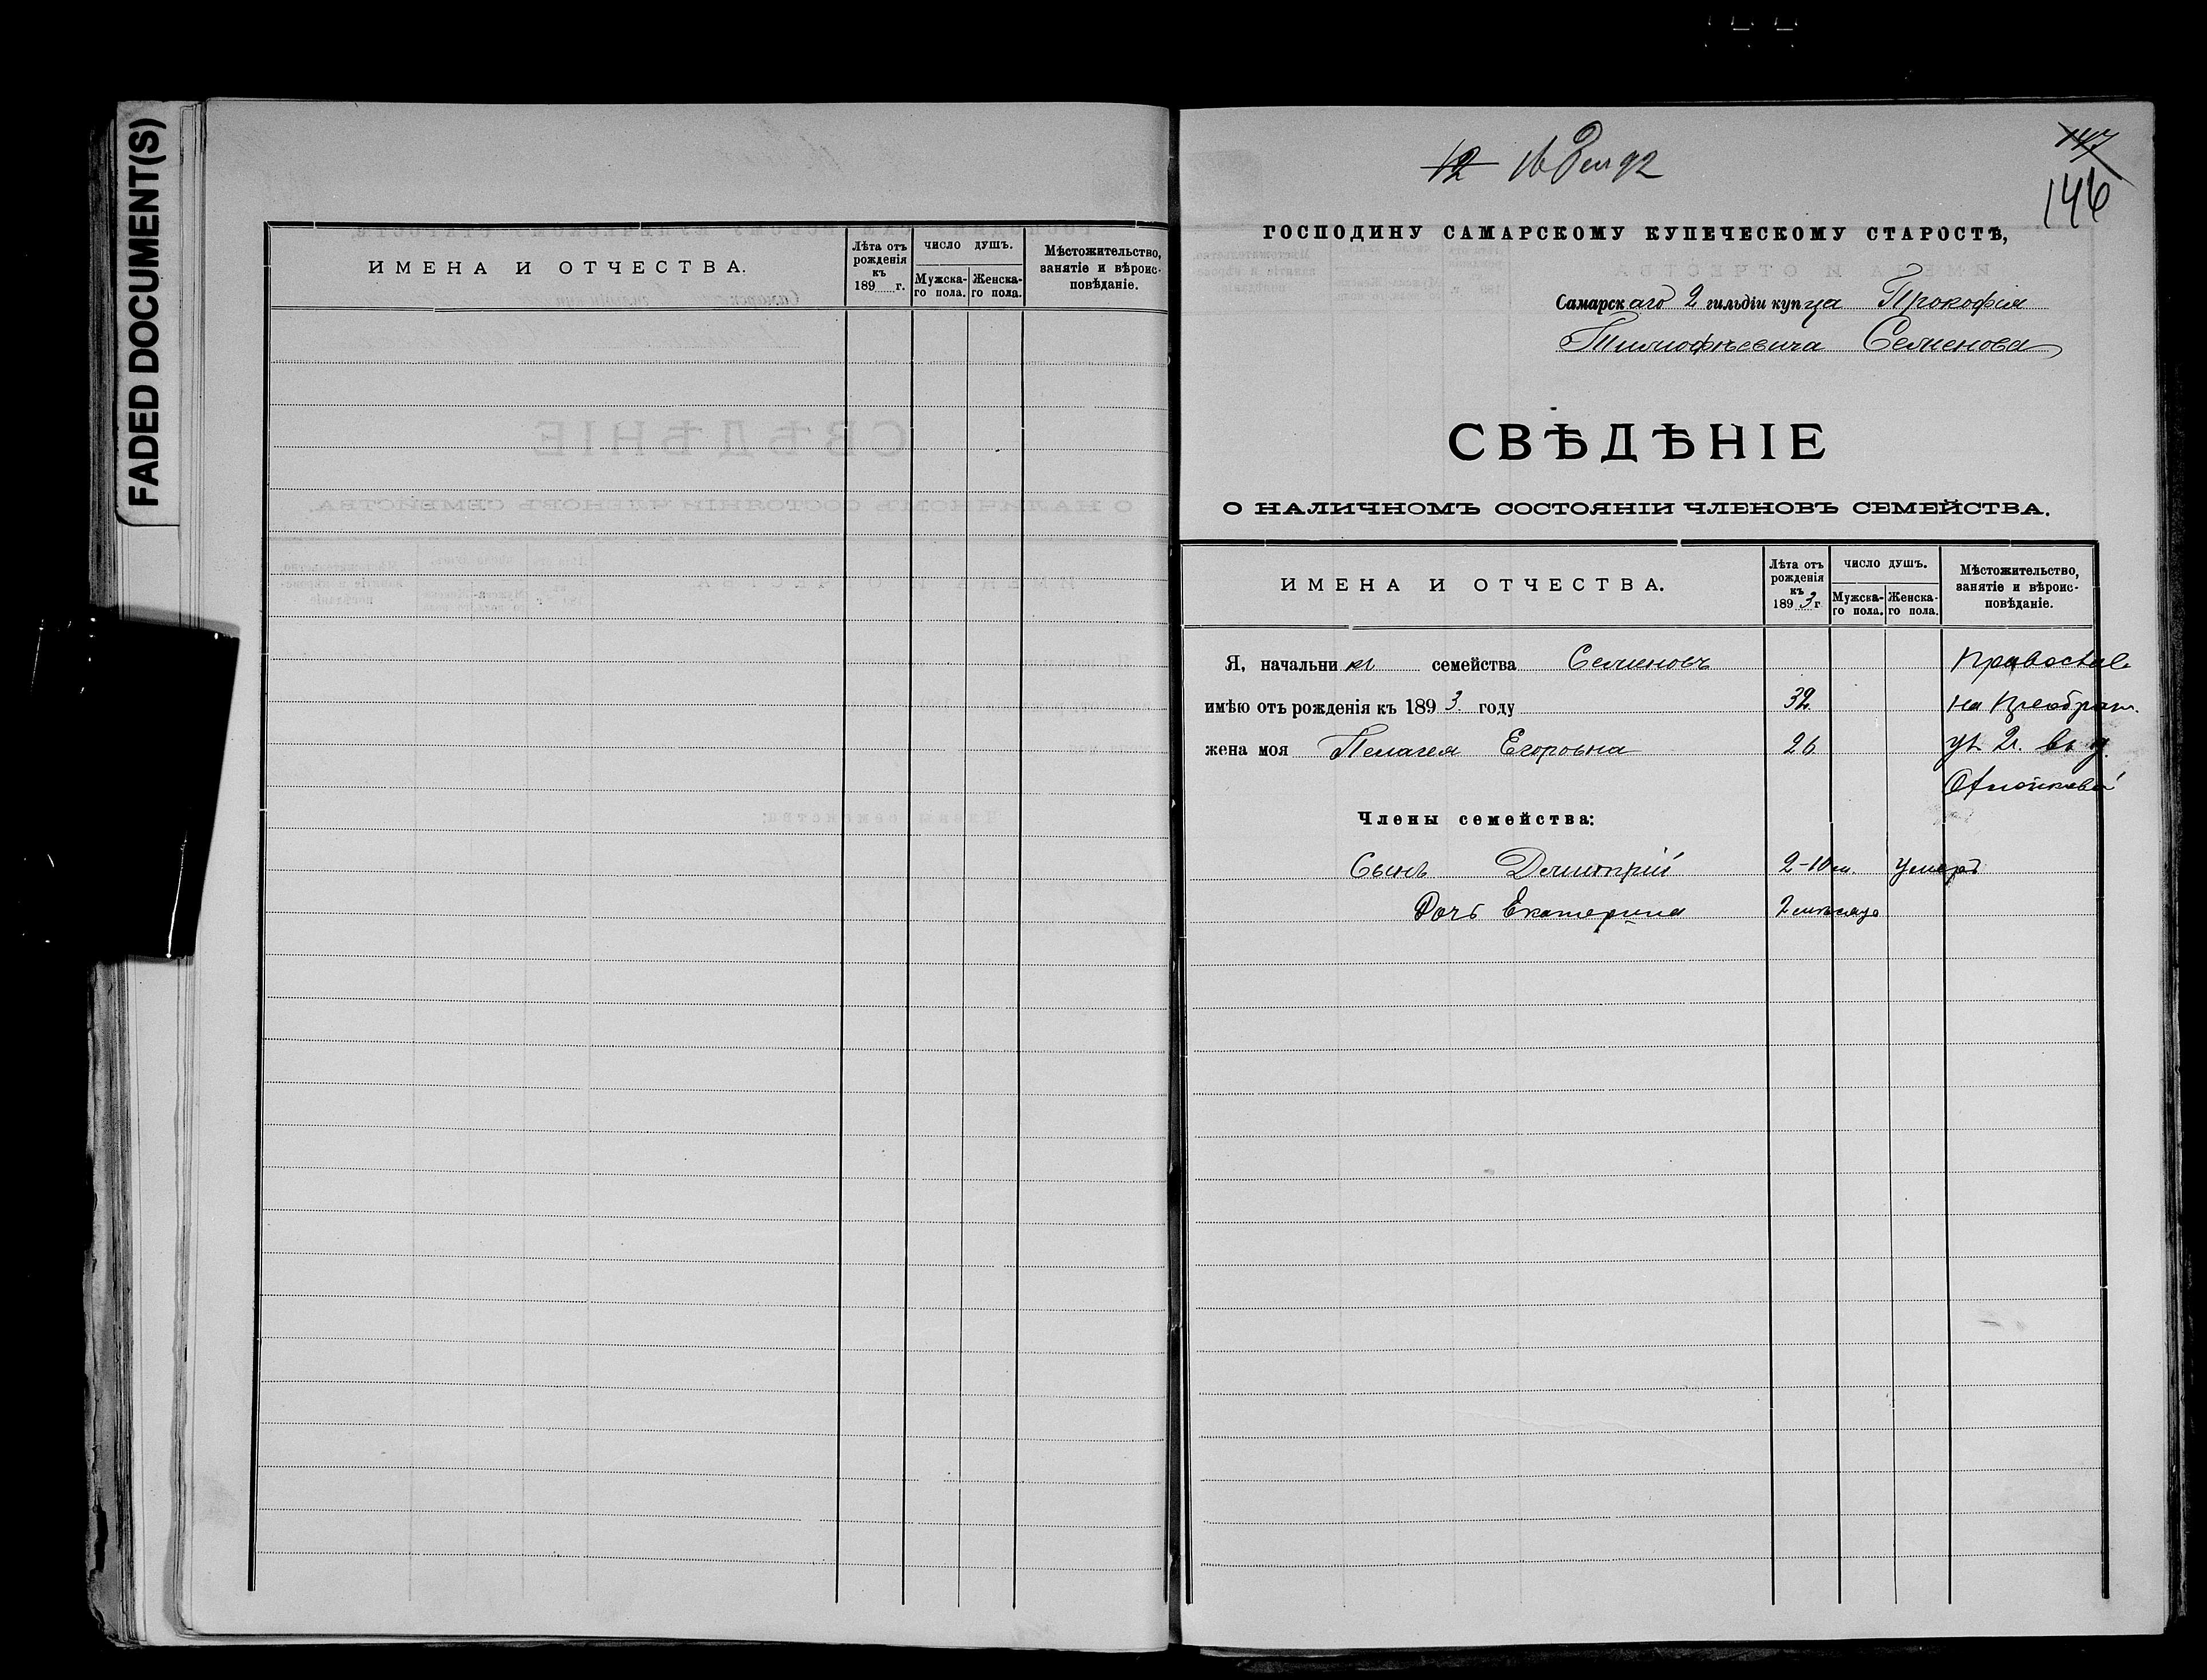 FADED DOCUMENT(S)
ИМЕНА И ОТЧЕСТВА.
Лѣта отъ рожденія къ 189 г.
ЧИСЛО ДУШЪ.
Мужска-го пола.
Женска-го пола.
Мѣстожительство, занятіе и вѣроис-повѣданіе.
147
146
12 16 Дек 92
ГОСПОДИНУ САМАРСКОМУ КУПЕЧЕСКОМУ СТАРОСТѢ,
Самарскаго 2 гильдіи купца Прокофія
Тимофѣевича Семенова
СВѢДѢНІЕ
О НАЛИЧНОМЪ СОСТОЯНІИ ЧЛЕНОВЪ СЕМЕЙСТВА.
ИМЕНА И ОТЧЕСТВА.
Лѣта отъ рожденія къ 1893 г
ЧИСЛО ДУШЪ.
Мужска-го пола.
Женска-го пола.
Мѣстожительство, занятіе и вѣроис-повѣданіе.
Я, начальник семейства Семеновъ Православ
имѣю отъ рожденія къ 1893 году 32 на Преображ.
жена моя Пелагея Егоровна 26 ул. 2ч. въ д.
Члены семейства:
Сынъ Димитрій 2-10 м. умеръ
Дочь Екатерина 2 мѣсяца